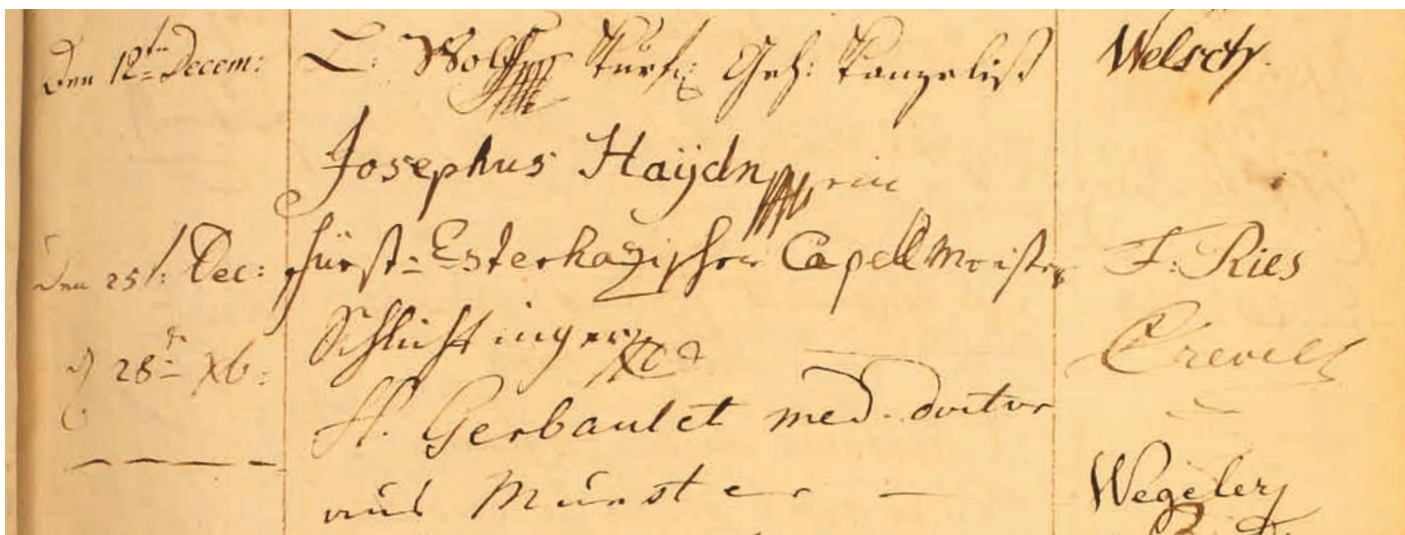 Den 12ten Decem: L: Wolff Kurf: Geh: Kanzelist Welsch.
Josephus Haÿdn
Den 25t: Dec: fürst=Esterhazischer CapellMeister F: Ries
28ten Xb: Schlichtinger Crevelt
H. Gerbaulet med. doctor
aus Münster Wegeler